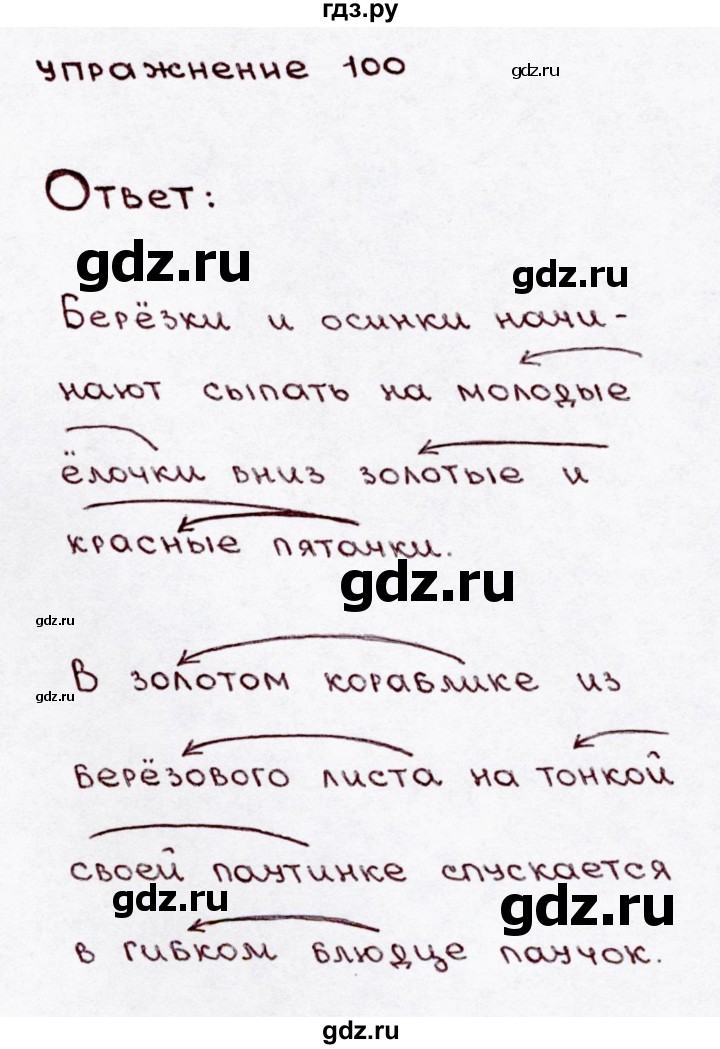 гдз.ру
упражнение 100
gdz.ru
Ответ:
gdz.ru
gdz.ru
Берёзки и осинки начи-
нают сыпать на молодые
ёлочки вниз золотые и
красные пятачки.
gdz.ru
gdz.ru
В золотом кораблике из
gdz.ru
берёзового листа на тонкой
своей паутинке спускается
gdz.ru
gdz.ru
в гибком блюдце паучок.
gdz.ru